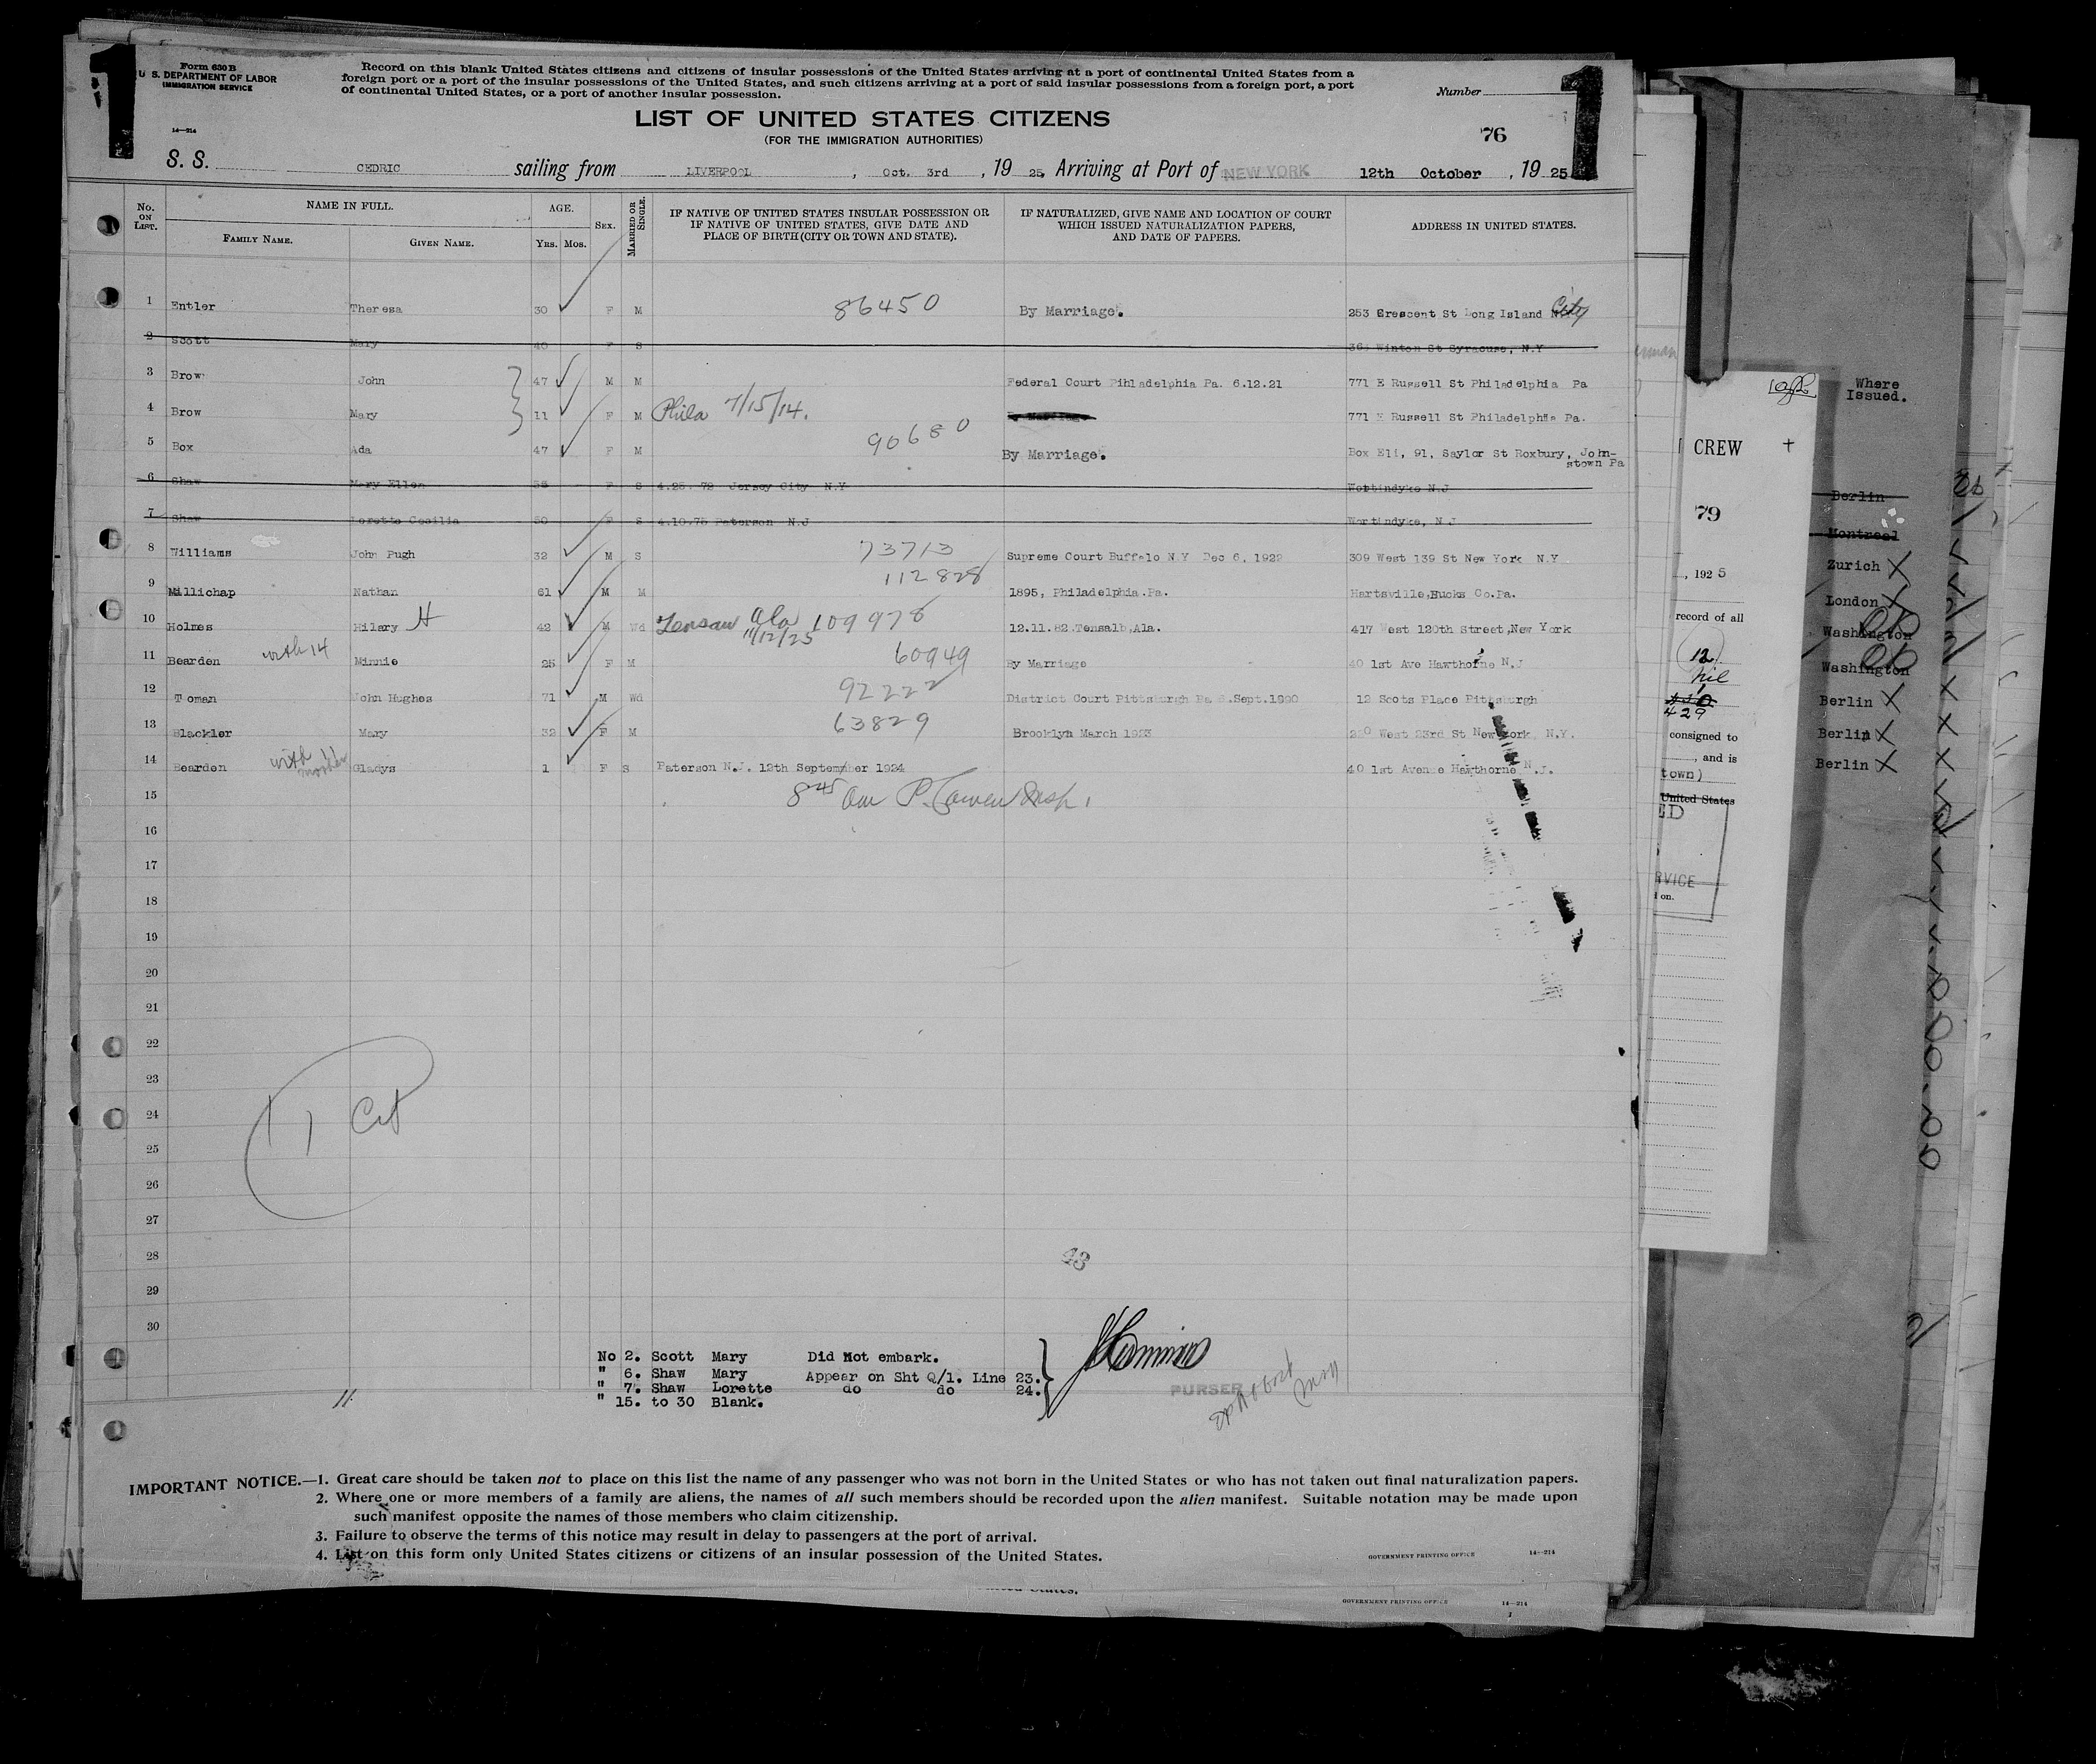 1
1
Form 630 B
U. S. DEPARTMENT OF LABOR
IMMIGRATION SERVICE
14—214
Record on this blank United States citizens and citizens of insular possessions of the United States arriving at a port of continental United States from a
foreign port or a port of the insular possessions of the United States, and such citizens arriving at a port of said insular possessions from a foreign port, a port
of continental United States, or a port of another insular possession.
Number
LIST OF UNITED STATES CITIZENS
(FOR THE IMMIGRATION AUTHORITIES)
76
S. S. CEDRIC sailing from LIVERPOOL, Oct. 3rd, 19 25, Arriving at Port of NEW YORK 12th October, 19 25
No. ON LIST. NAME IN FULL. AGE. SEX. MARRIED OR SINGLE. IF NATIVE OF UNITED STATES INSULAR POSSESSION OR IF NATIVE OF UNITED STATES, GIVE DATE AND PLACE OF BIRTH (CITY OR TOWN AND STATE). IF NATURALIZED, GIVE NAME AND LOCATION OF COURT WHICH ISSUED NATURALIZATION PAPERS, AND DATE OF PAPERS. ADDRESS IN UNITED STATES.
FAMILY NAME. GIVEN NAME. YRS. MOS.
1 Entler Theresa 30 F M 86450 By Marriage. 253 Crescent St Long Island City
2 Scott Mary 40 F S 36 Winton St Syracuse, N.Y
3 Brow John 47 M M Federal Court Pihladelphia Pa. 6.12.21 771 E Russell St Philadelphia Pa
4 Brow Mary 11 F M Phila 7/15/14. 771 E Russell St Philadelphia Pa.
5 Box Ada 47 F M 90680 By Marriage. Box Eli, 91, Saylor St Roxbury, John-
stown Pa
6 Shaw Mary Ellen F S 4.25.72 Jersey City N.Y Wortindyke N.J
7 Shaw Lorette Cecilia 50 F S 4.10.75 Paterson N.J Wortindyke, N.J
8 Williams John Pugh 32 M S 73713 Supreme Court Buffalo N.Y Dec 6, 1922 309 West 139 St New York N.Y
9 Millichap Nathan 61 M M 112828 1895, Philadelphia.Pa. Hartsville,Bucks Co.Pa.
10 Holmes Hilary H 42 M Wd Tensaw Ala 11/12/25 109978 12.11.82.Tensalb,Ala. 417 West 120th Street,New York
11 Bearden with 14 Minnie 25 F M 60949 By Marriage 40 1st Ave Hawthorne N.J
12 Toman John Hughes 71 M Wd 92222 District Court Pittsburgh Pa .Sept.1900 12 Scots Place Pittsburgh
13 Blackler Mary 32 F M 63829 Brooklyn March 1923 West 23rd St New York N.Y.
14 Bearden with mother 11 Gladys 1 F S Paterson N.J. 12th September 1924 40 1st Avenue Hawthorne N.J.
15 8 45 am
16
17
18
19
20
21
22
23
24
25
26
27
28
29
30
11 Cit
43
No 2. Scott Mary Did Not embark.
" 6. Shaw Mary Appear on Sht Q/1. Line 23.
" 7. Shaw Lorette do do 24.
" 15. to 30 Blank.
PURSER
11
IMPORTANT NOTICE.—1. Great care should be taken not to place on this list the name of any passenger who was not born in the United States or who has not taken out final naturalization papers.
2. Where one or more members of a family are aliens, the names of all such members should be recorded upon the alien manifest. Suitable notation may be made upon
such manifest opposite the names of those members who claim citizenship.
3. Failure to observe the terms of this notice may result in delay to passengers at the port of arrival.
4. List on this form only United States citizens or citizens of an insular possession of the United States.
GOVERNMENT PRINTING OFFICE 14—214
GOVERNMENT PRINTING OFFICE 14—214
CREW
79
, 192 5
record of all
12
nil
429
consigned to
, and is
town)
United States
ED
RVICE
on.
Where
Issued.
Berlin
Montreal
Zurich X
London X
Washington
Washington
Berlin X
Berlin X
Berlin X